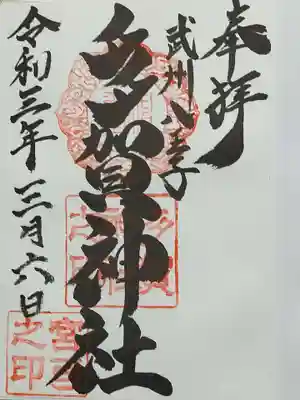 奉拝
武州八王子
多賀神社
令和三年三月六日
宮司之印